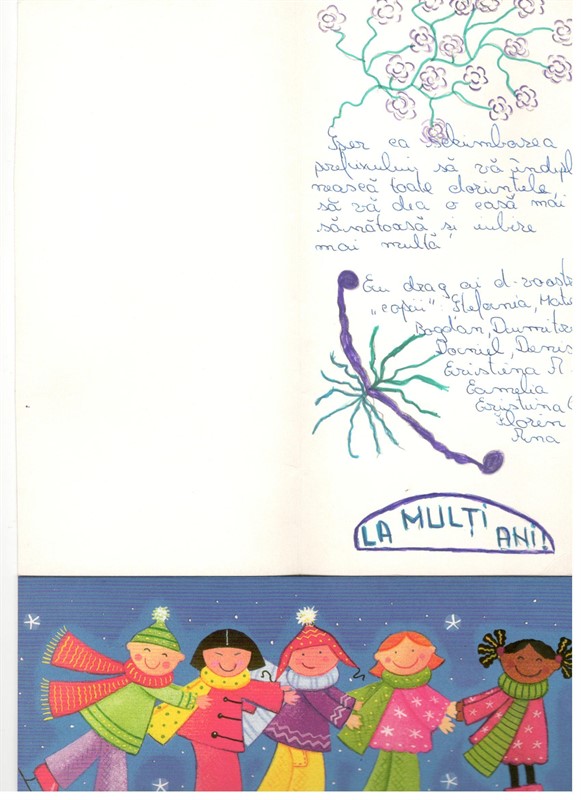 Sper ca schimbarea
prefixului să vă îndepl
nească toate dorințele,
să vă dea o casă mai
sănătoasă și iubire
mai multă,
Cu drag ai d-voastr
"copii": Ștefania, Mate
Bogdan, Dumitr
Daniel, Denis
Cristina R
Camelia
Cristina
Florin
Ana
LA MULȚI ANI!